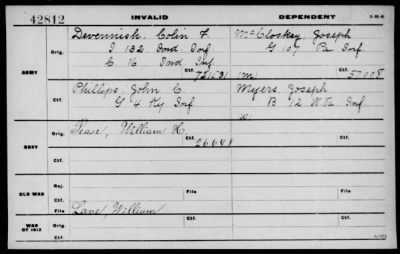 42812 INVALID DEPENDENT
Devennish, Colin F. McCloskey Joseph
Orig. I 132 Ind Inf G 107 Pa Inf
ARMY C 16 Ind. Inf
Ctf. 721531 (m) Ctf. 57008
Phillips, John C Myers, Joseph
Ctf. G 4 Ky Inf B 12 W Va Inf
Pease, William H.
Orig. Ctf. 26641
NAVY
Ctf.
OLD WAR Rej. File
Ctf.
File Lane, William
WAR OF 1812 Orig. Ctf.
Ctf.